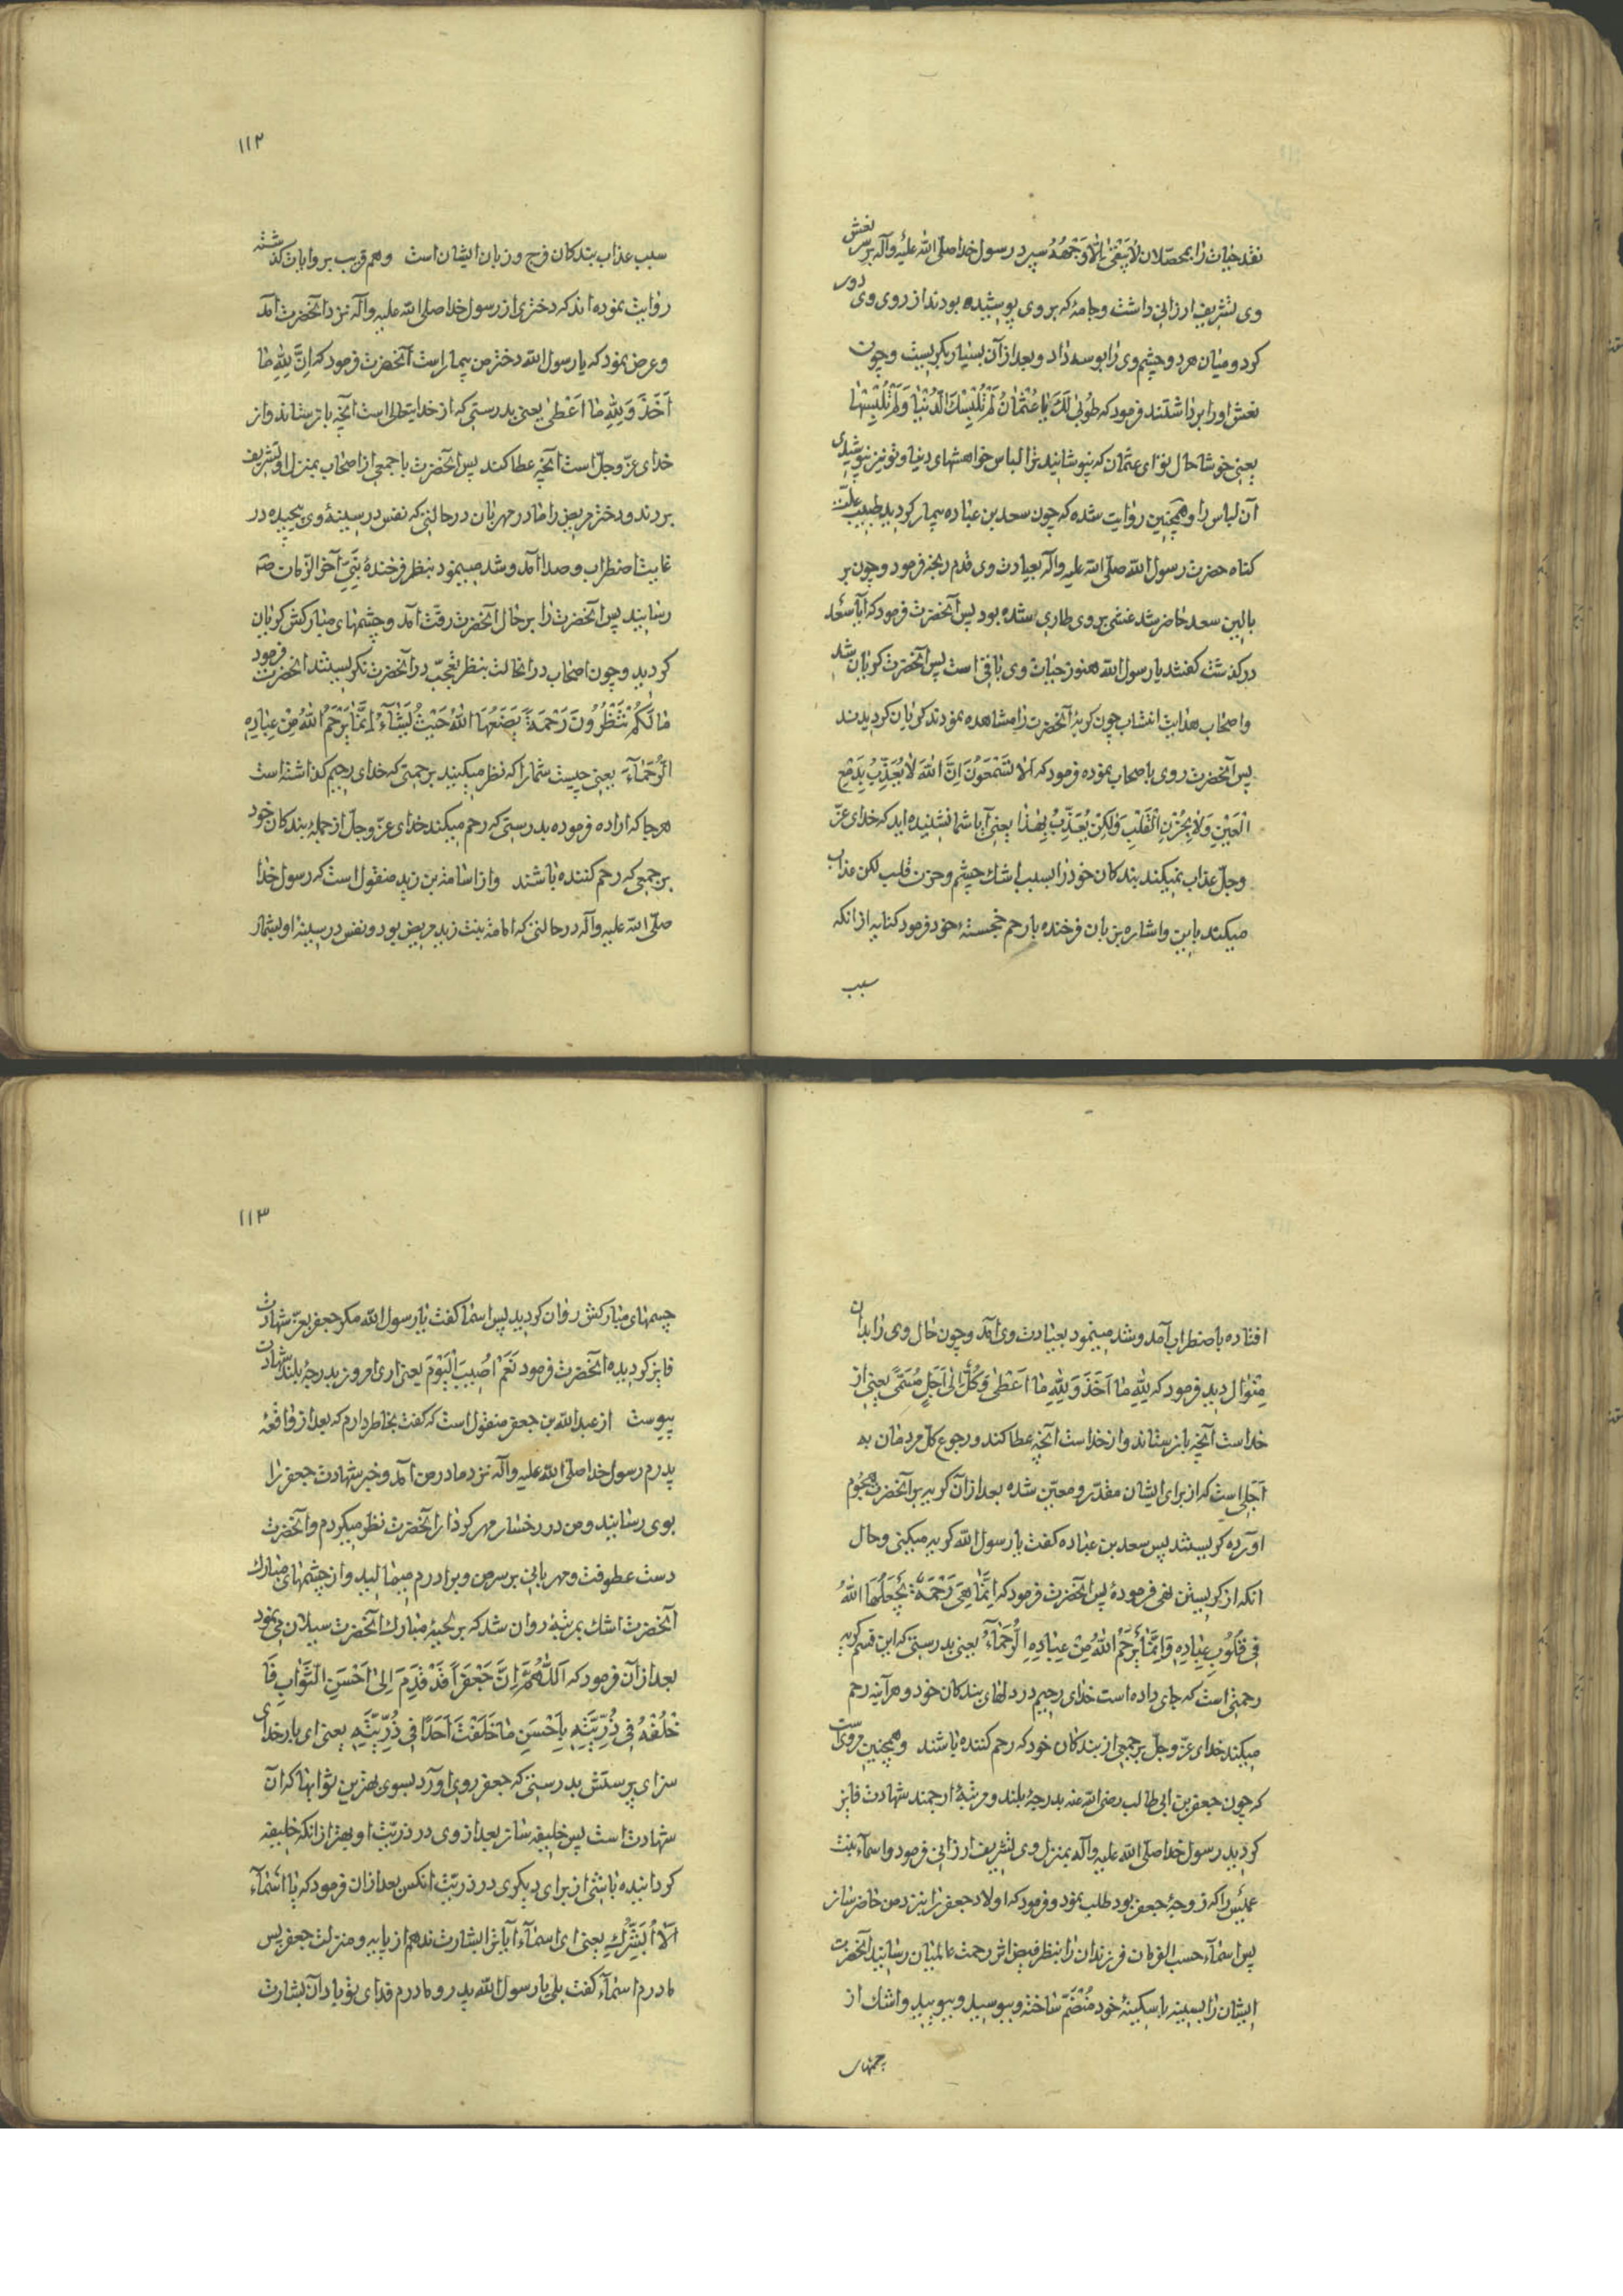 نقد حیات را بمحصّلان لا یبقی الّا وجهه سپرد رسول خدا صلّی الله علیه وآله بر سر نعش
وی تشریف ارزانی داشت وجامهٔ که بر وی پوشیده بودند از روی وی دور
کرد ومیان هر دو چشم وی را بوسه داد وبعد از آن بسیار بگریست وچون
نعش او را برداشتند فرمود که طُوبیٰ لَكَ یَا عُثْمٰانُ لَمْ تُلْبِسْكَ الدُّنْیٰا وَلَمْ تَلْبِسْهٰا
یعنی خوشا حال تو ای عثمان که نپوشانید ترا لباس خواهشهای دنیا وتو نیز نپوشیدی
آن لباس را وهمچنین روایت شده که چون سعد بن عباده بیمار کردید طبیب علّت
کناه حضرت رسول الله صلّی الله علیه وآله بعیادت وی قدم رنجه فرمود وچون بر
بالین سعد حاضر شد غشی بر وی طاری شده بود پس آنحضرت فرمود که آیا سعد
در کذشت کفتند یا رسول الله هنوز حیات وی باقی است پس آنحضرت کریان شد
واصحاب هدایت انتساب چون کریهٔ آنحضرت را مشاهده نمودند کریان کردیدند
پس آنحضرت روی باصحاب نموده فرمود که اَلا تَسْمَعُونَ اِنَّ اللهَ لاٰ یُعَذِّبُ بِدَمْعِ
الْعَیْنِ وَلاٰ بِحُزْنِ الْقَلْبِ وَلٰكِنْ یُعَذِّبُ بِهٰذٰا یعنی آیا شما نشنیده اید که خدای عزّ
وجلّ عذاب نمیکند بندکان خود را بسبب اشك چشم وحزن قلب لکن عذاب
میکند باین واشاره بزبان فرخنده بار حم خجسته خود فرمود کنایه از انکه
سبب
۱۱۲
سبب عذاب بندکان فرج وزبان ایشان است وهم قریب بروایات کذشته
روایت نموده اند که دختری از رسول خدا صلی الله علیه وآله نزد آنحضرت آمد
وعرض نمود که یا رسول الله دختر من بیمار است آنحضرت فرمود که اِنَّ لِلّٰهِ مٰا
اَخَذَ وَلِلّٰهِ مٰا اَعْطیٰ یعنی بدرستی که از خدایتعالی است آنچه باز ستاند واز
خدای عزّ وجلّ است آنچه عطا کند پس آنحضرت با جمعی از اصحاب بمنزل او تشریف
بردند ودختر مریض را مادر مهربان در حالتی که نفس در سینهٔ وی پیچیده در
غایت اضطراب وصدا آمد وشد مینمود بنظر فرخندهٔ نبیّ آخر الزّمان صه
رسانید پس آنحضرت را بر حال آنحضرت رقّت آمد وچشمهای مبارکش کریان
کردید وچون اصحاب در انحالت بنظر تعجّب در آنحضرت نکریستند آنحضرت فرمود
مٰا لَكُمْ تَنْظُرُونَ رَحْمَةً یَضَعُهَا اللهُ حَیْثُ یَشٰآءُ اِنَّمٰا یَرْحَمُ اللهُ مِنْ عِبٰادِهِ
الرُّحَمٰآءَ یعنی چیست شما را که نظر میکنید برحمتی که خدای رحیم کذاشته است
هر جا که اراده فرموده بدرستی که رحم میکند خدای عزّ وجلّ از جملهٔ بندکان خود
بر جمعی که رحم کننده باشند واز اسامة بن زید منقول است که رسول خدا
صلّی الله علیه وآله در حالتی که امامة بنت زید مریض بود ونفس در سینه او بشمار
افتاده باضطراب آمد وشد مینمود بعیادت وی آمد وچون حال وی را بدان
مِنْوال دید فرمود که لِلّٰهِ مٰا اَخَذَ وَلِلّٰهِ مٰا اَعْطیٰ وَكُلٌّ اِلیٰ اَجَلٍ مُسَمًّی یعنی از
خداست آنچه باز ستاند واز خداست آنچه عطا کند ورجوع کل مردمان به
اَجَلی است که از برای ایشان مقدّر ومعیّن شده بعد از آن کریه بر آنحضرت هجُوم
آورده کریستند پس سعد بن عباده کفت یا رسول الله کریه میکنی وحال
انکه از کریستن نهی فرمودهٔ پس آنحضرت فرمود که اِنَّمٰا هِیَ رَحْمَةٌ یَجْعَلُهَا اللهُ
فِی قُلُوبِ عِبٰادِهِ وَاِنَّمٰا یَرْحَمُ اللهُ مِنْ عِبٰادِهِ الرُّحَمٰآءَ یعنی بدرستی که این قسم کریه
رحمتی است که جای داده است خدای رحیم در دلهای بندکان خود وهر آینه رحم
میکند خدای عزّ وجلّ بر جمعی از بندکان خود که رحم کننده باشند وهمچنین مرویست
که چون جعفر بن ابی طالب رضی الله عنه بدرجهٔ بلند ومرتبهٔ ارجمند شهادت فایز
کردید رسول خدا صلّی الله علیه وآله بمنزل وی تشریف ارزانی فرمود واسمآء بنت
عمیس را که زوجهٔ جعفر بود طلب نمود وفرمود که اولاد جعفر را نزد من حاضر ساز
پس اسمآء حسب الفرمان فرزندان را بنظر فیض اثر رحمت عالمیان رسانید آنحضرت
ایشان را بسینه با سکینهٔ خود مُنْضَمّ ساخته وببوسید وببویید واشك از
چشمهای
۱۱۳
چشمهای مبارکش روان کردید پس اسما کفت یا رسول الله مکر جعفر بعزّ شهادت
فایز کردیده آنحضرت فرمود نَعَمْ اُصِیبَ الْیَوْمَ یعنی اری امروز بدرجهٔ بلند شهادت
پیوست از عبد الله بن جعفر منقول است که کفت بخاطر دارم که بعد از واقعهٔ
پدرم رسول خدا صلّی الله علیه وآله نزد مادر من آمد وخبر شهادت جعفر را
بوی رسانید ومن در رخسار مهر کردار آنحضرت نظر میکردم وآنحضرت
دست عطوفت ومهربانی بر سر من وبرادرم میمالید واز چشمهای مبارك
آنحضرت اشك بمرتبهٔ روان شد که بر لحیهٔ مبارك آنحضرت سیلان می نمود
بعد از آن فرمود که اَللّٰهُمَّ اِنَّ جَعْفَراً قَدْ قَدِمَ اِلیٰ اَحْسَنِ الثَّوٰابِ فَا
خْلُفْهُ فِی ذُرِّیَّتِهِ بِاَحْسَنِ مٰا خَلَفْتَ اَحَدًا فِی ذُرِّیَّتِهِ یعنی ای بار خدای
سزای پرستش بدرستی که جعفر روی آورد بسوی بهترین ثوابها که آن
شهادت است پس خلیفه ساز بعد از وی در ذریّت او بهتر از انکه خلیفه
کردانیده باشی از برای دیکری در ذریّت انکس بعد از ان فرمود که یا اَسْمٰآء
اَلاٰ اُبَشِّرُكِ یعنی ای اسمآء آیا ترا بشارت ندهم از پایه ومنزلت جعفر پس
مادرم اسمآء کفت بلی یا رسول الله پدر ومادرم فدای تو باد آن بشارت